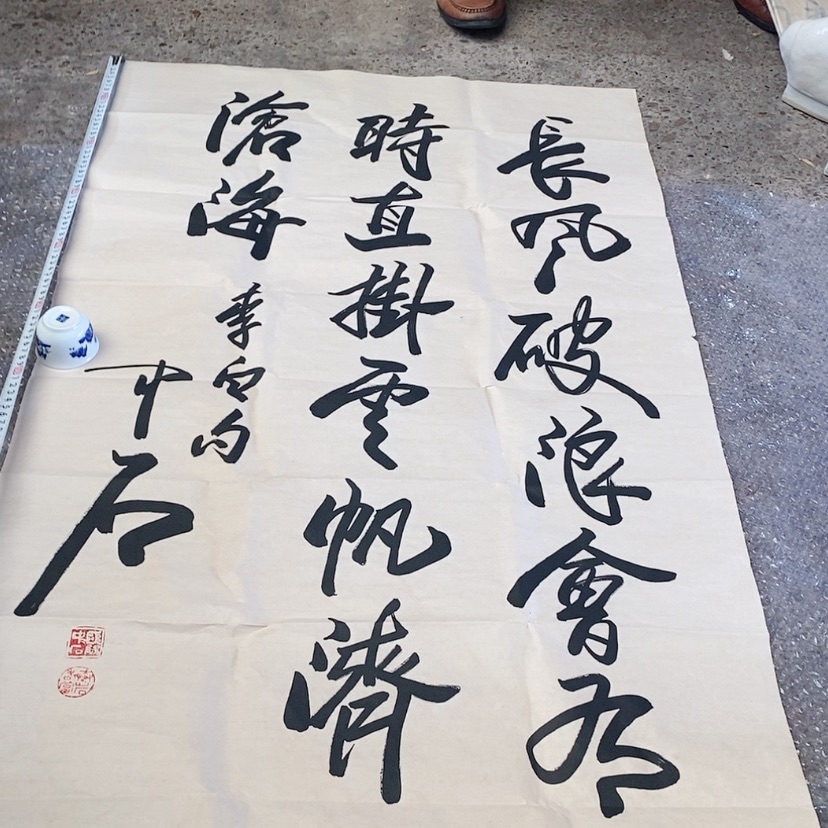 長風破浪會有
時直掛雲帆濟
滄海
李白句
中石